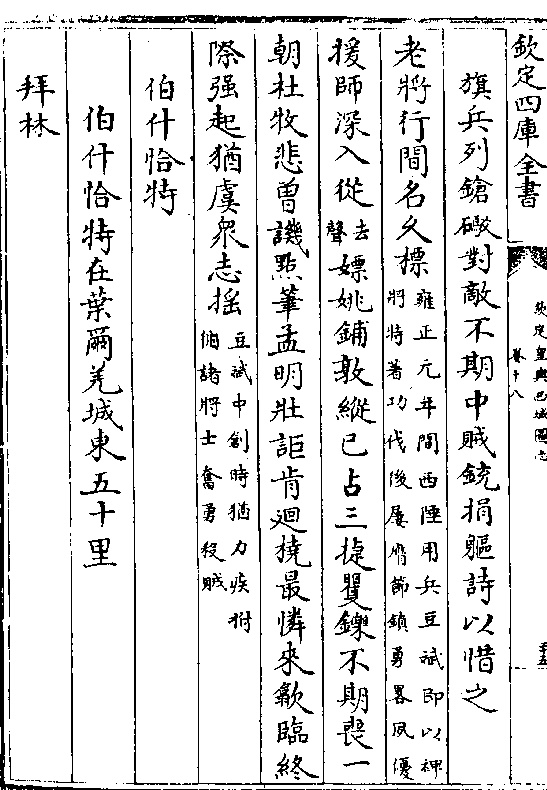 欽定四庫全書
欽定皇輿西域圖志
卷十八
旗兵列鎗礮對敵不期中賊銃捐軀詩以惜之
老將行間名久標雍正元年間西陲用兵豆斌即以裨
將特著功伐後屢膺節鎮勇畧夙優
援師深入從去
聲嫖姚鋪敦縱已占三捷矍鑠不期喪一
朝杜牧悲曾譏點筆孟明壯詎肯迴橈最憐來歙臨終
際强起猶虞衆志揺豆斌中創時猶力疾拊
循諸將士奮勇殺賊
伯什恰特
伯什恰特在葉爾羌城東五十里
拜林